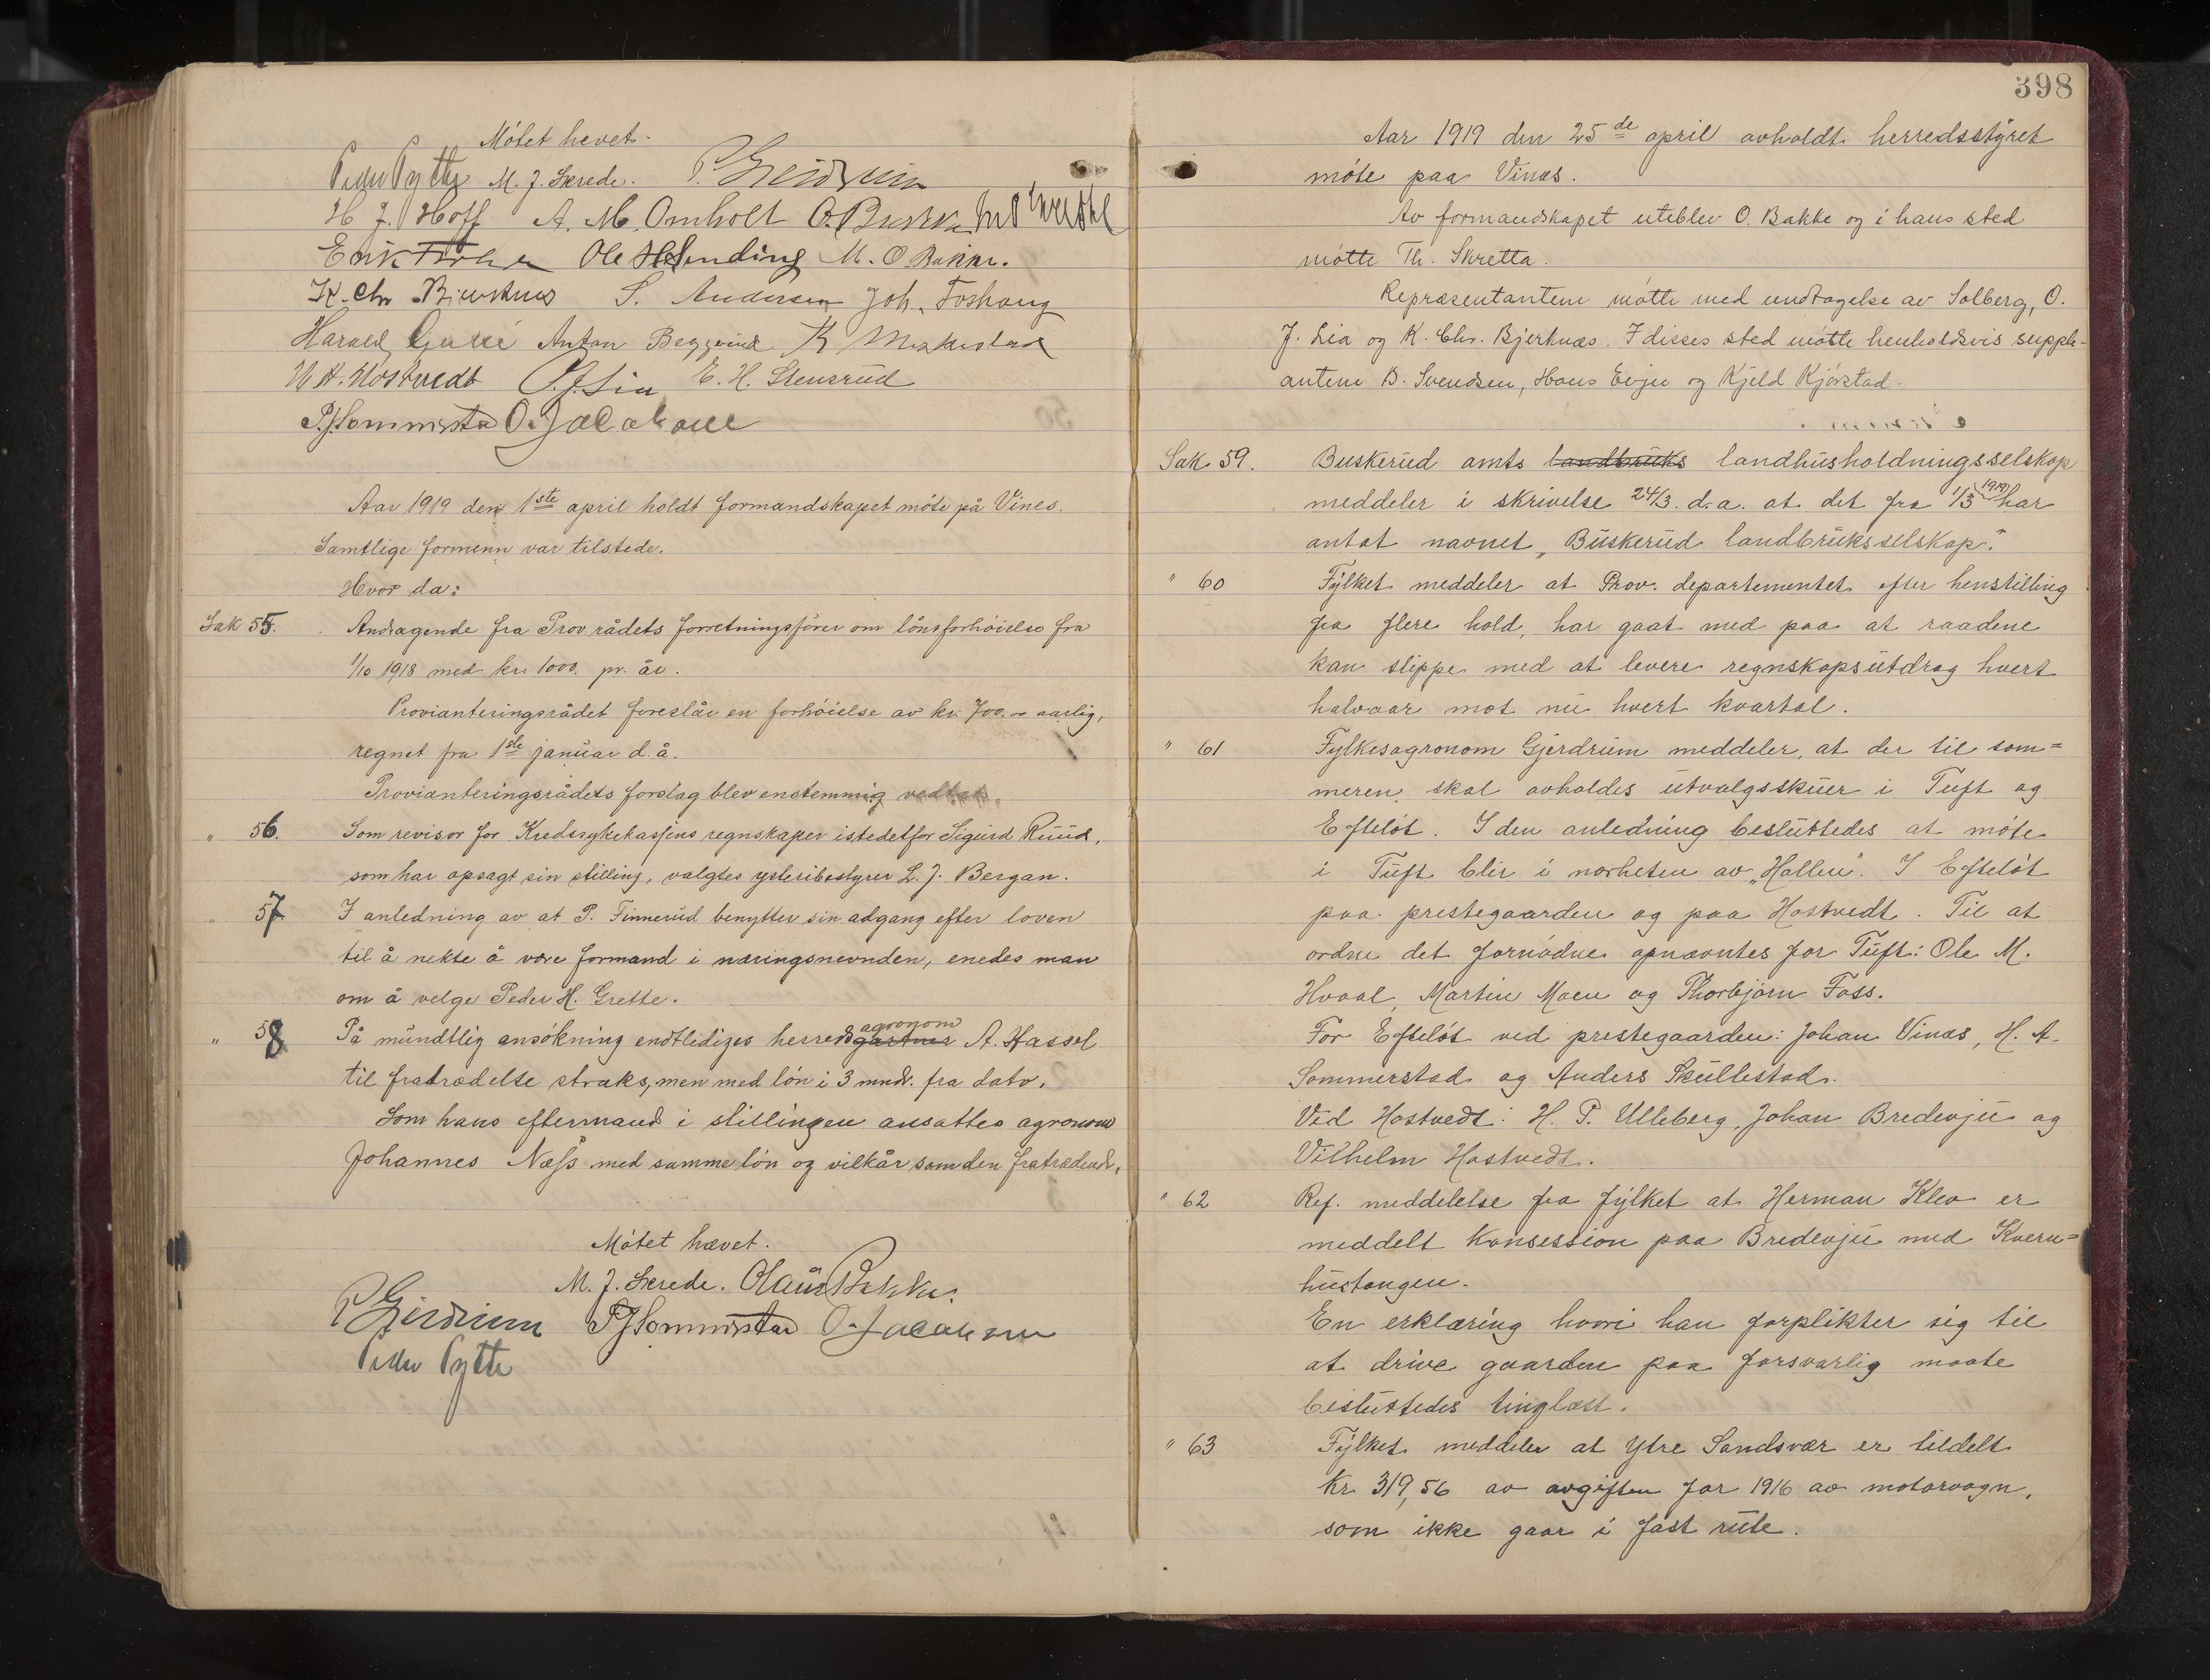 Mötet hevet.
Peder Pytte M. J. Skrede. P. Gjerdrum
H. J. Hoff A. M. Omholt O. Bakke
Erik Ole H. Sending M. O. Bakke.
K. Chr. Bjerknes S. Andersen Joh. Foshaug
Harald Anton Beggerud
H. A. Hostvedt O. J. Lia E. H. Stensrud
P. J. Sommerstad O. Jacobsen
Aar 1919 den 1ste april holdt formandskapet möte på Vines.
Samtlige formenn var tilstede.
Hvor da:
Sak 55. Andragende fra Prov.rådets forretningsförer om lönsforhöielse fra
1/10 1918 med kr. 1000. pr. år.
Provianteringsrådet foreslår en forhöielse av kr. 700.- aarlig,
regnet fra 1ste januar d.å.
Provianteringsrådets forslag blev enstemmig vedtat.
" 56. Som revisor for Kredssykekassens regnskaper istedetfor Sigurd Ruud,
som har opsagt sin stilling, valgtes ysteribestyrer L. J. Bergan.
" 57 I anledning av at P. Tinnerud benytter sin adgang efter loven
til å nekte å være formand i næringsnevnden, enedes man
om å velge Peder H. Grette.
" 58 På mündtlig ansökning endtlediges herredsgartner agronom A. Hassel
til fratrædelse straks, men med lön i 3 mndr. fra dato.
Som hans eftermand i stillingen ansattes agronom
Johannes Næss med samme lön og vilkår som den fratrædende.
Mötet hævet.
M. J. Skrede. Olaus Bakke.
P. Gjerdrum P. J. Sommerstad O. Jacobsen
Peder Pytte
398
Aar 1919 den 25de april avholdt herredsstyret
möte paa Vinæs.
Av formandskapet uteblev O. Bakke og i hans sted
mötte Th. Skretta.
Repræsentantene mötte med undtagelse av Solberg, O.
J. Lia og K. Chr. Bjerknæs. I disses sted mötte henholdsvis supple-
antene B. Svendsen, Hans Evju og Kjeld Kjörstad.
Sak 59. Buskerud amts landbruks landhusholdningsselskap
meddeler i skrivelse 24/3. d.a. at det fra 1/3 1919 har
antat navnet „Buskerud landbruksselskap."
" 60 Fylket meddeler at Prov. departementet efter henstilling
fra flere hold, har gaat med paa at raadene
kan slippe med at levere regnskapsutdrag hvert
halvaar mot nu hvert kvartal.
" 61 Fylkesagronom Gjerdrum meddeler, at der til som=
meren skal avholdes utvalgsskuer i Tuft og
Efteløt. I den anledning besluttedes at møte
i Tuft blir i nærheten av „Hallen". I Efteløt
paa prestegaarden og paa Hostvedt. Til at
ordne det fornødne opnævntes for Tuft: Ole M.
Hvaal, Martin Moen og Thorbjørn Foss.
For Efteløt ved prestegaarden: Johan Vinæs, H. A.
Sommerstad og Anders Skullestad.
Ved Hostvedt: H. P. Ulleberg, Johan Bredevju og
Vilhelm Hostvedt.
" 62 Ref. meddelelse fra fylket at Herman Klev er
meddelt konsession paa Bredevju med Kvern=
hustangen.
En erklæring hvori han forplikter sig til
at drive gaarden paa forsvarlig maate
besluttedes tinglæst.
" 63 Fylket meddeler at Ytre Sandsvær er tildelt
kr. 319,56 av avgiften for 1916 av motorvogn,
som ikke gaar i fast rute.